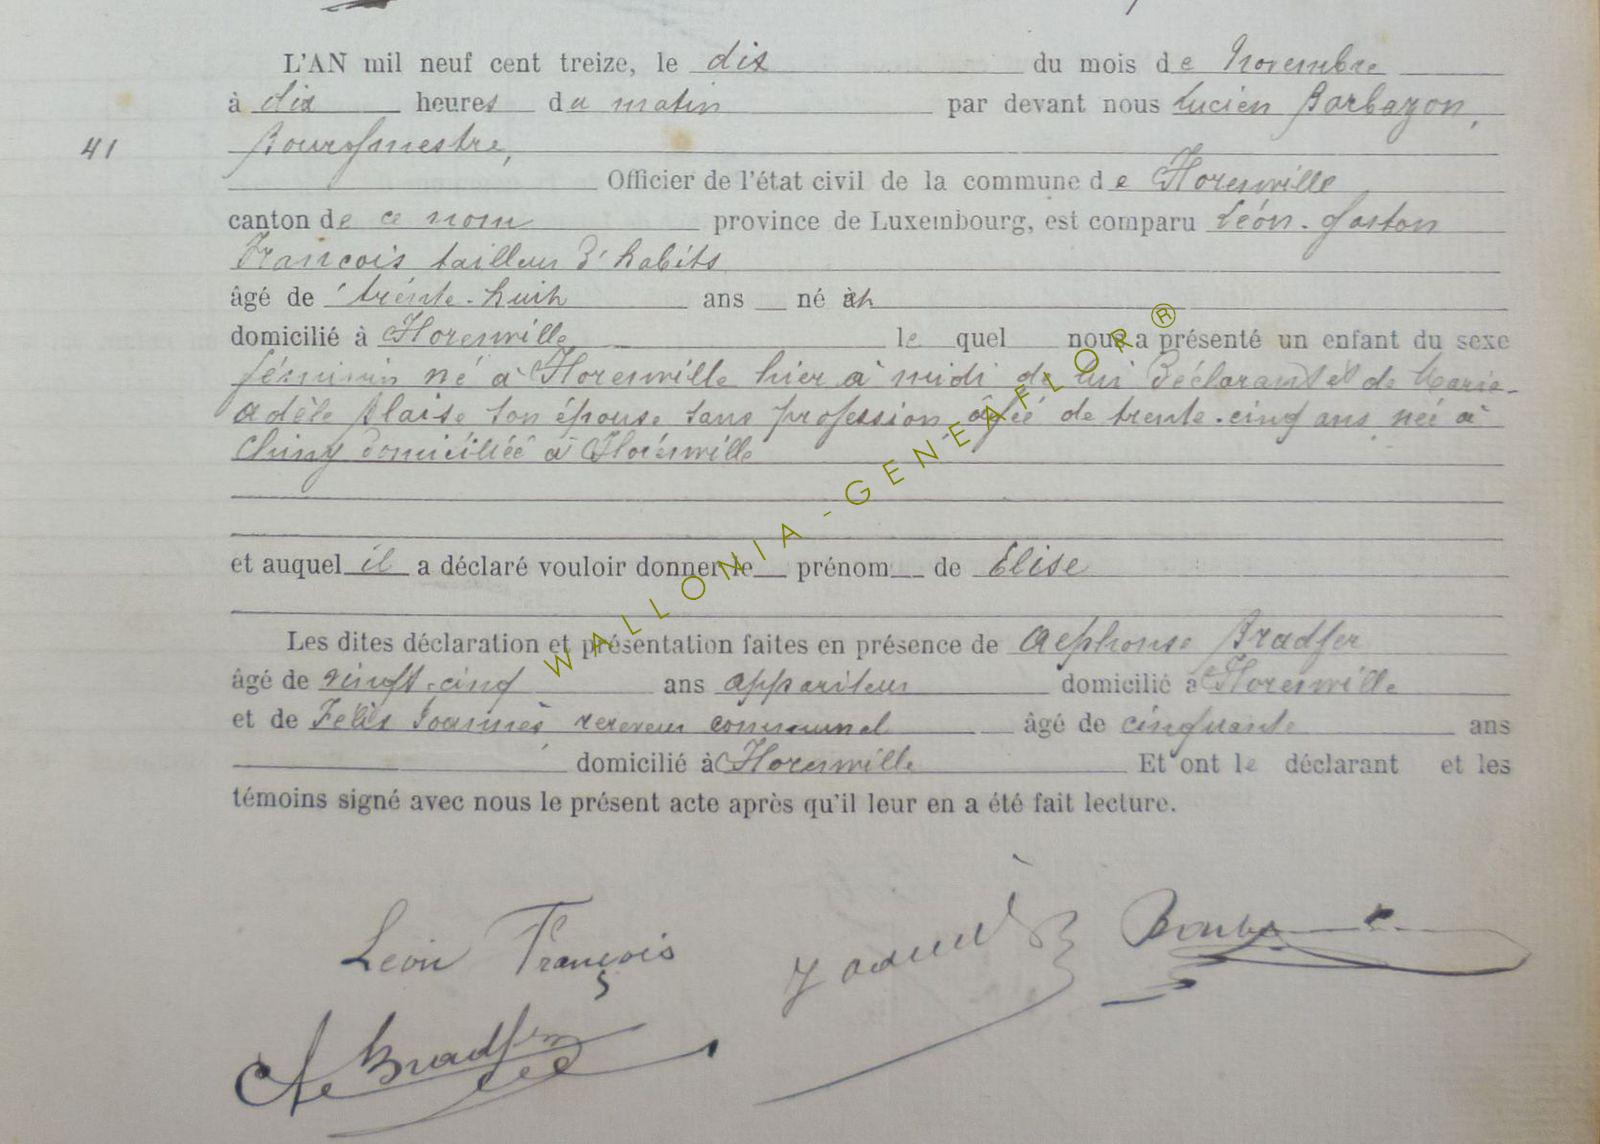 L'AN mil neuf cent treize, le dix du mois de Novembre
à dix heures du matin par devant nous Lucien Barbazon,
41
Bourgmestre,
Officier de l'état civil de la commune de Florenville
canton de ce nom province de Luxembourg, est comparu Léon-Gaston
François tailleur d'habits
âgé de trente-huit ans né à
domicilié à Florenville le quel nous a présenté un enfant du sexe
féminin né à Florenville hier à midi de lui déclarant et de Marie-
Adèle Blaise son épouse sans profession âgée de trente-cinq ans née à
Chiny domiciliée à Florenville
et auquel il a déclaré vouloir donner le prénom de Elise
Les dites déclaration et présentation faites en présence de Alphonse Bradfer
âgé de vingt-cinq ans appariteur domicilié à Florenville
et de Felix Joannès receveur communal âgé de cinquante ans
domicilié à Florenville Et ont le déclarant et les
témoins signé avec nous le présent acte après qu'il leur en a été fait lecture.
WALLONIA-GENEAFLOR®
Léon François
A Bradfer